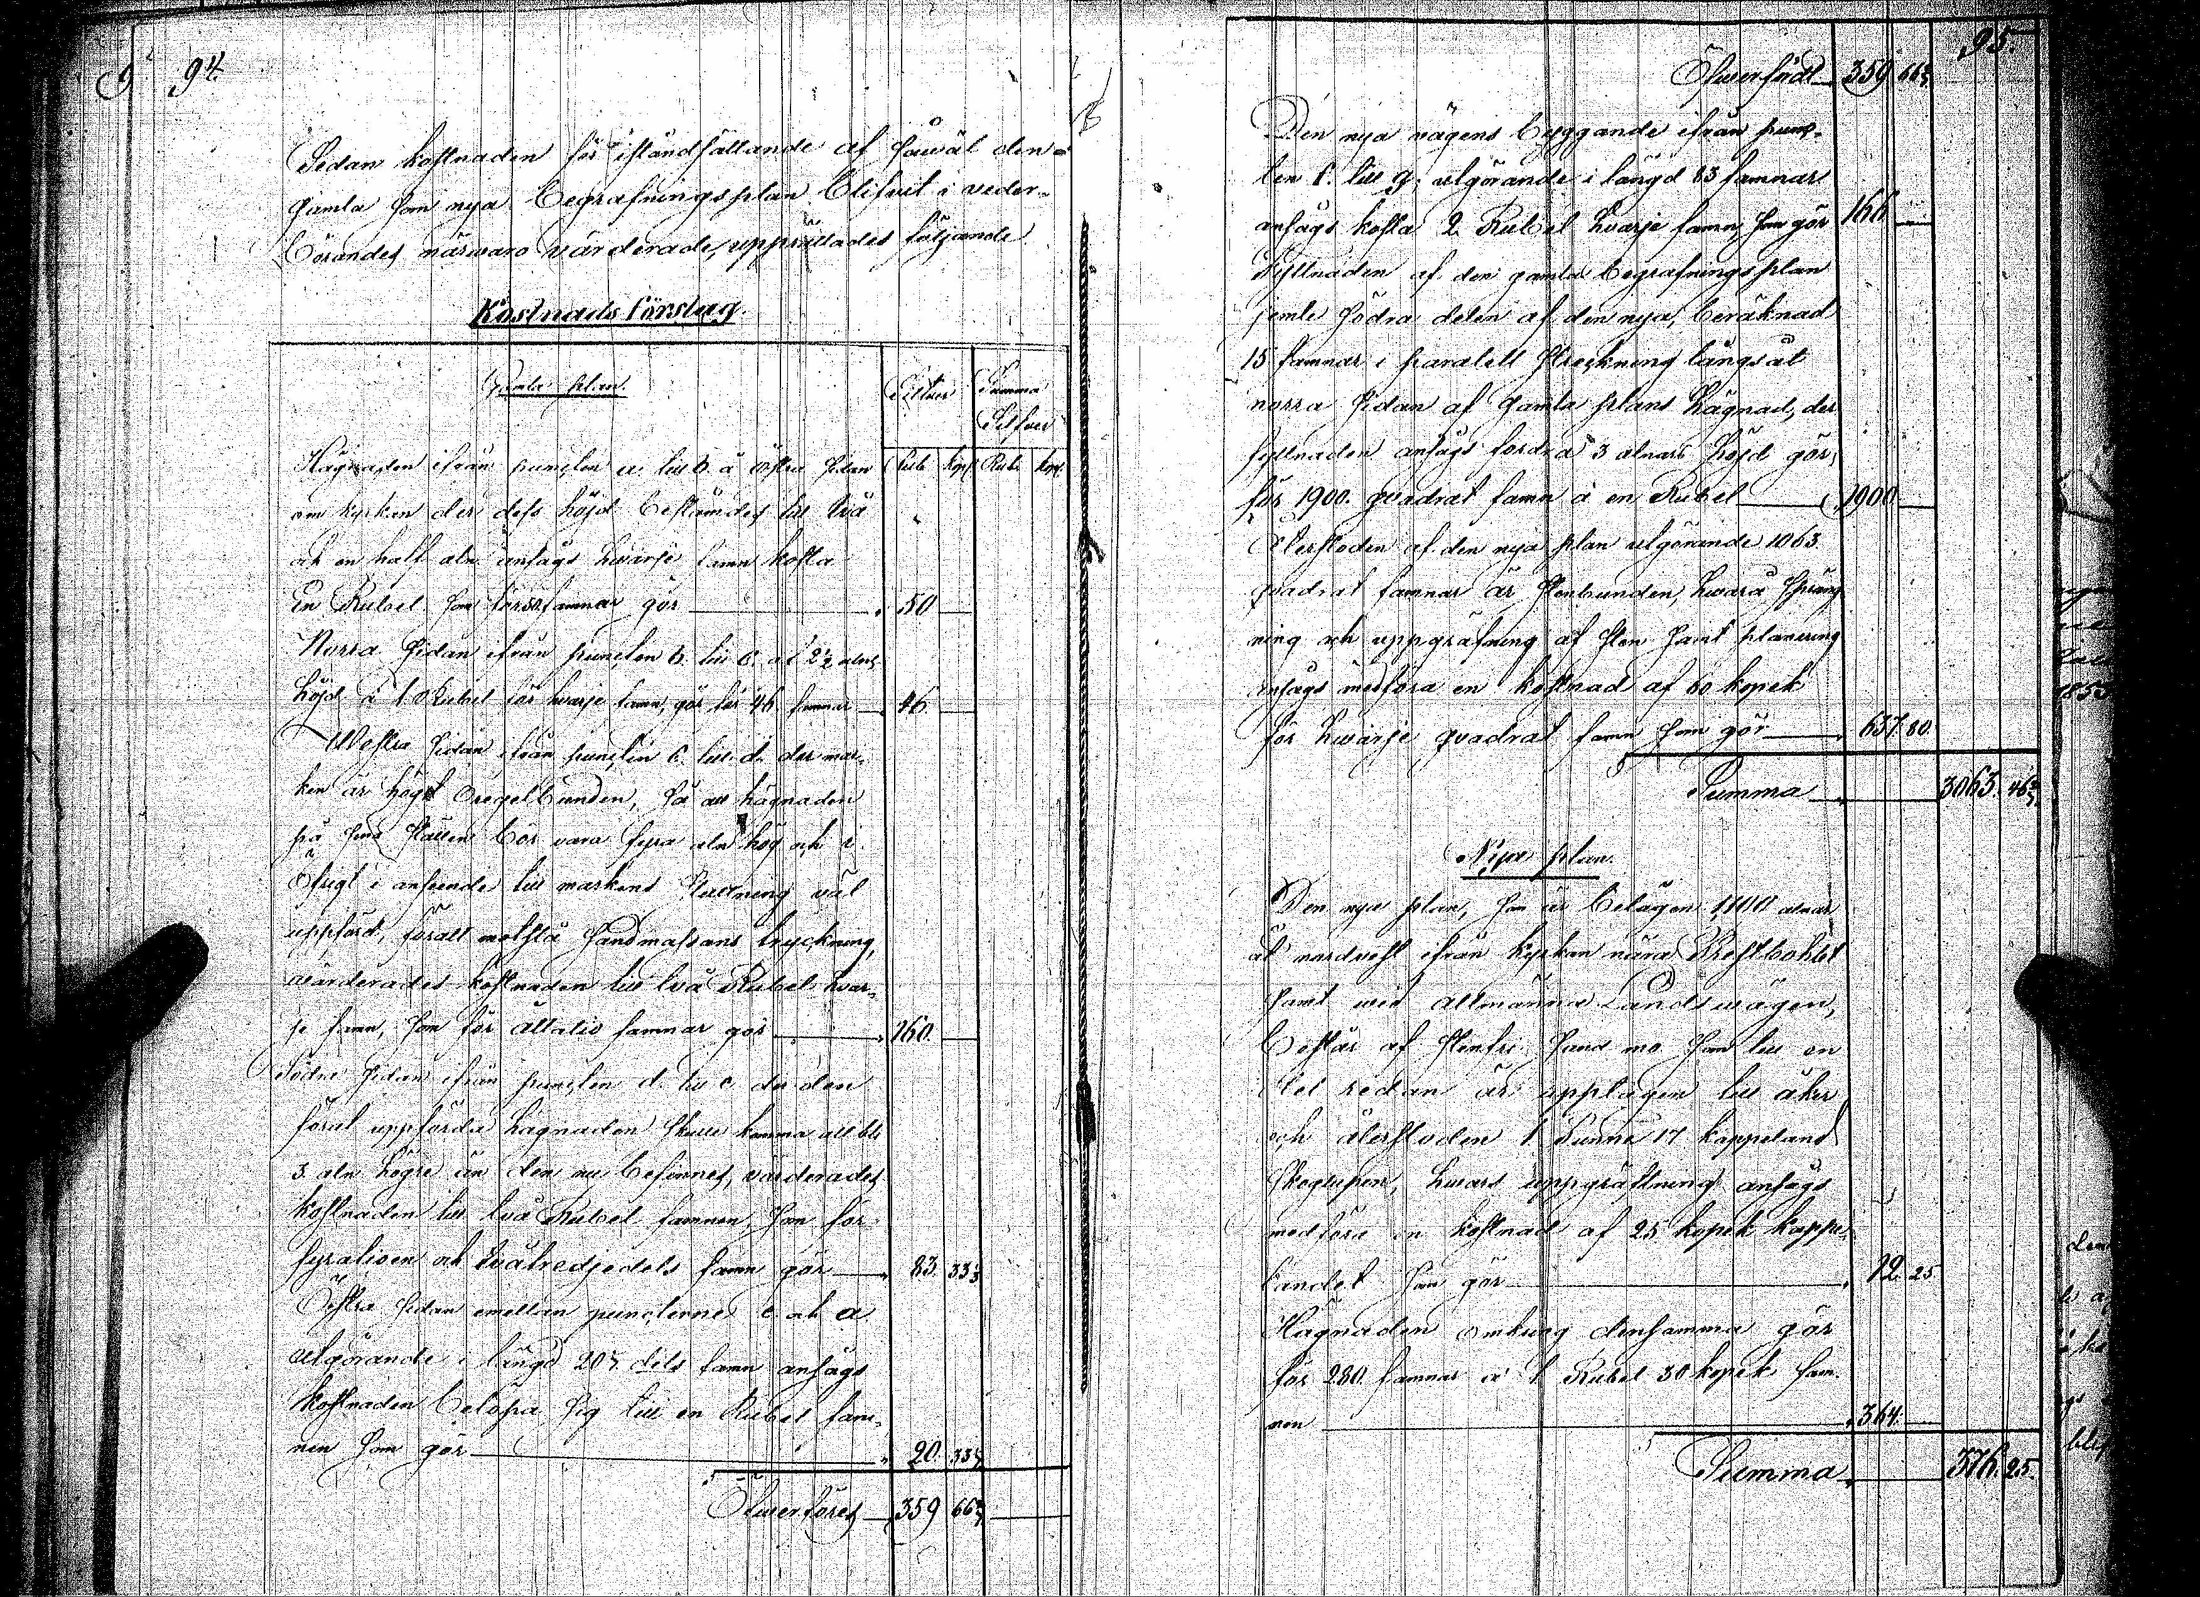 94.
Sedan kostnaden för iståndsättande af såwäl den
gamla som nya begrafningsplan blifvit i veder-
börandes närwaro värderade, upprättades följande
Kostnads förslag.
Gamla plan.
Silfver Summa Silfver
Hägnaden ifrån puncten a. till b. å östra sidan Rub. kop. Rub. kop.
om kyrkan der dess höjd bestämdes till två
och en half aln ansågs hwarje famn kosta
En Rubel som för 50 famnar gör 50
Norra sidan ifrån puncten b. till c. af 2½ alns
höjd à 1 Rubel för hvarje famn, gör för 46 famnar 46
Westra sidan ifrån puncten c. till d. der mar-
ken är högst oregelbunden, så att hägnaden
på sina ställen bör vara fyra aln hög och i
öfrigt i anseende till markens sluttning väl
uppförd, för att motstå sandmassans tryckning,
värderades kostnaden till två Rubel hvar-
je famn, som för åttatio famnar gör 160.
Södra sidan ifrån puncten d. till e. der den
förut uppförda hägnaden skulle komma att bli
3 aln högre än den nu befinnes, värderades
kostnaden till två Rubel famnen, som för
fyratioen och tvåtredjedels famn gör 83. 33⅓
Östra sidan emellan puncterne e. och a
utgörande i längd 20⅓ dels famn ansågs
kostnaden belöpa sig till en Rubel fam-
nen som gör 20. 33⅓
Öfwerföres 359 66⅔
95.
Öfwerfördt 359 66⅔
Den nya vägens byggande ifrån punc-
ten f. till g. utgörande i längd 83 famnar
ansågs kosta 2 Rubel hvarje famn, som gör 166
Fyllnaden af den gamla begrafningsplan
jemte södra delen af den nya, beräknad
15 famnar i paralell streckning längsåt
norra sidan af gamla plans hägnad, der
fyllnaden ansågs fordra 3 alnars höjd gör,
för 1900. quadrat famn à en Rubel 1900
Återstoden af den nya plan utgörande 1063
quadrat famnar är stenbunden, hwara spräng-
ning och uppgräfning af sten samt planering
ansågs medföra en kostnad af 60 kopek
för hwarje quadrat famn som gör 637. 80.
Summa 3063. 46⅔
Nya plan.
Den nya plan, som är belägen 1,100 alnar
åt nordvest ifrån kyrkan nära Prestbohlet
samt wid allmänna Landswägen,
består af stenfri sand mo som till en
del redan är upptagen till åker
och återstoden 1 Tunna 17 kappeland
skoglupen, hwars uppgräftning ansågs
medföra en kostnad af 25 kopek kappe-
landet som gör 12. 25
Hägnaden omkring densamma gör
för 280 famnar à 1 Rubel 30 kopek fam-
nen 364.
Summa 376. 25.